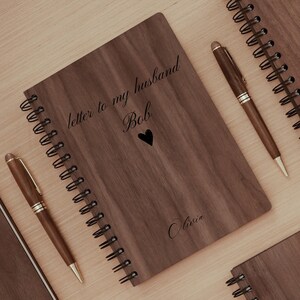 letter to my husband
Bob
Olivia